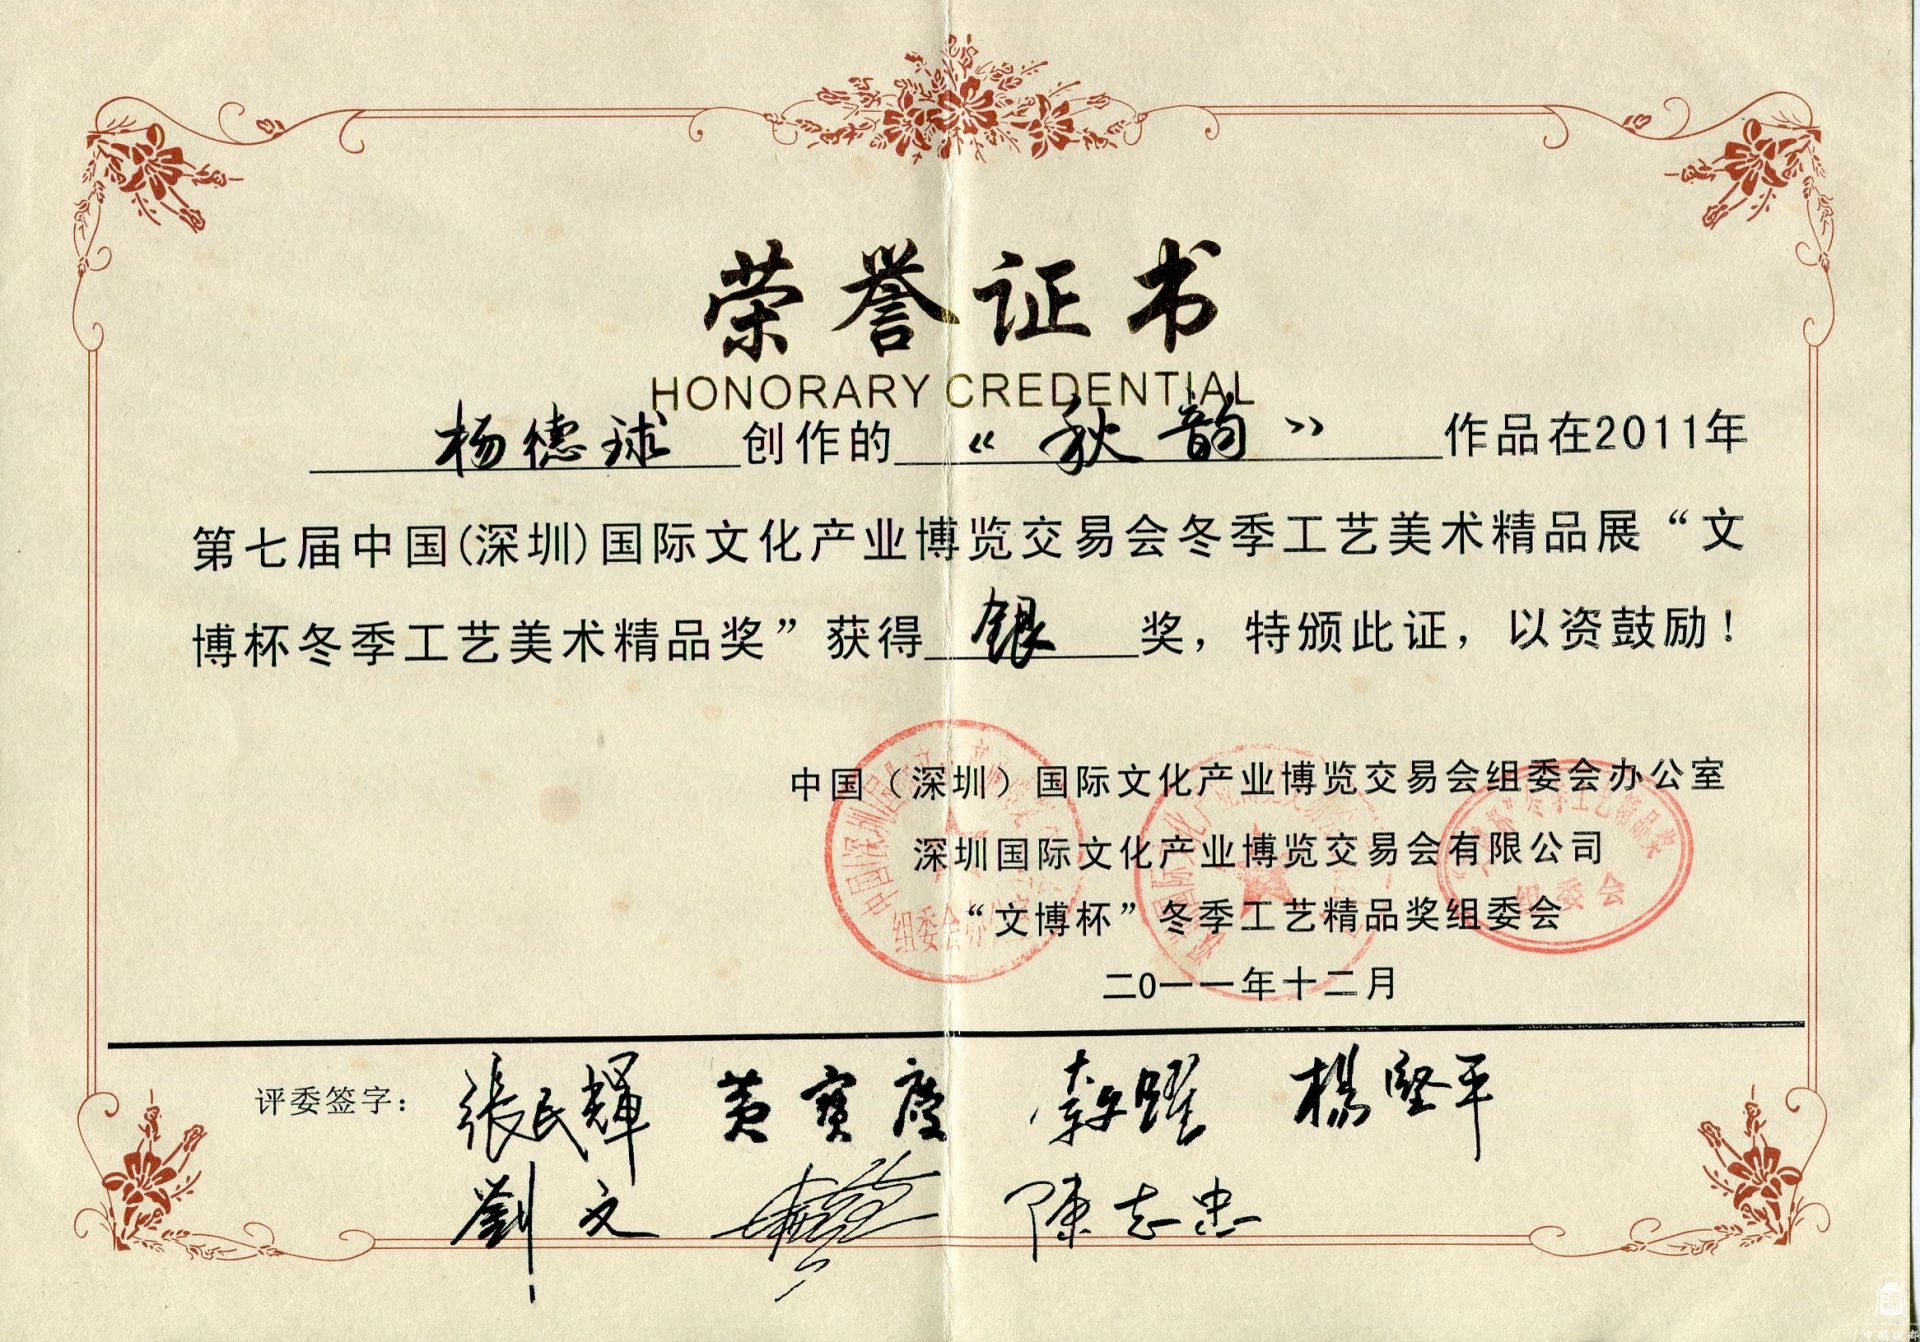 荣誉证书
HONORARY CREDENTIAL
杨德球创作的《秋韵》作品在2011年
第七届中国(深圳)国际文化产业博览交易会冬季工艺美术精品展“文
博杯冬季工艺美术精品奖”获得银奖，特颁此证，以资鼓励！
中国（深圳）国际文化产业博览交易会组委会办公室
深圳国际文化产业博览交易会有限公司
“文博杯”冬季工艺精品奖组委会
二0一一年十二月
评委签字：
張民輝 黄寶慶 楊堅平
劉文 陳志忠